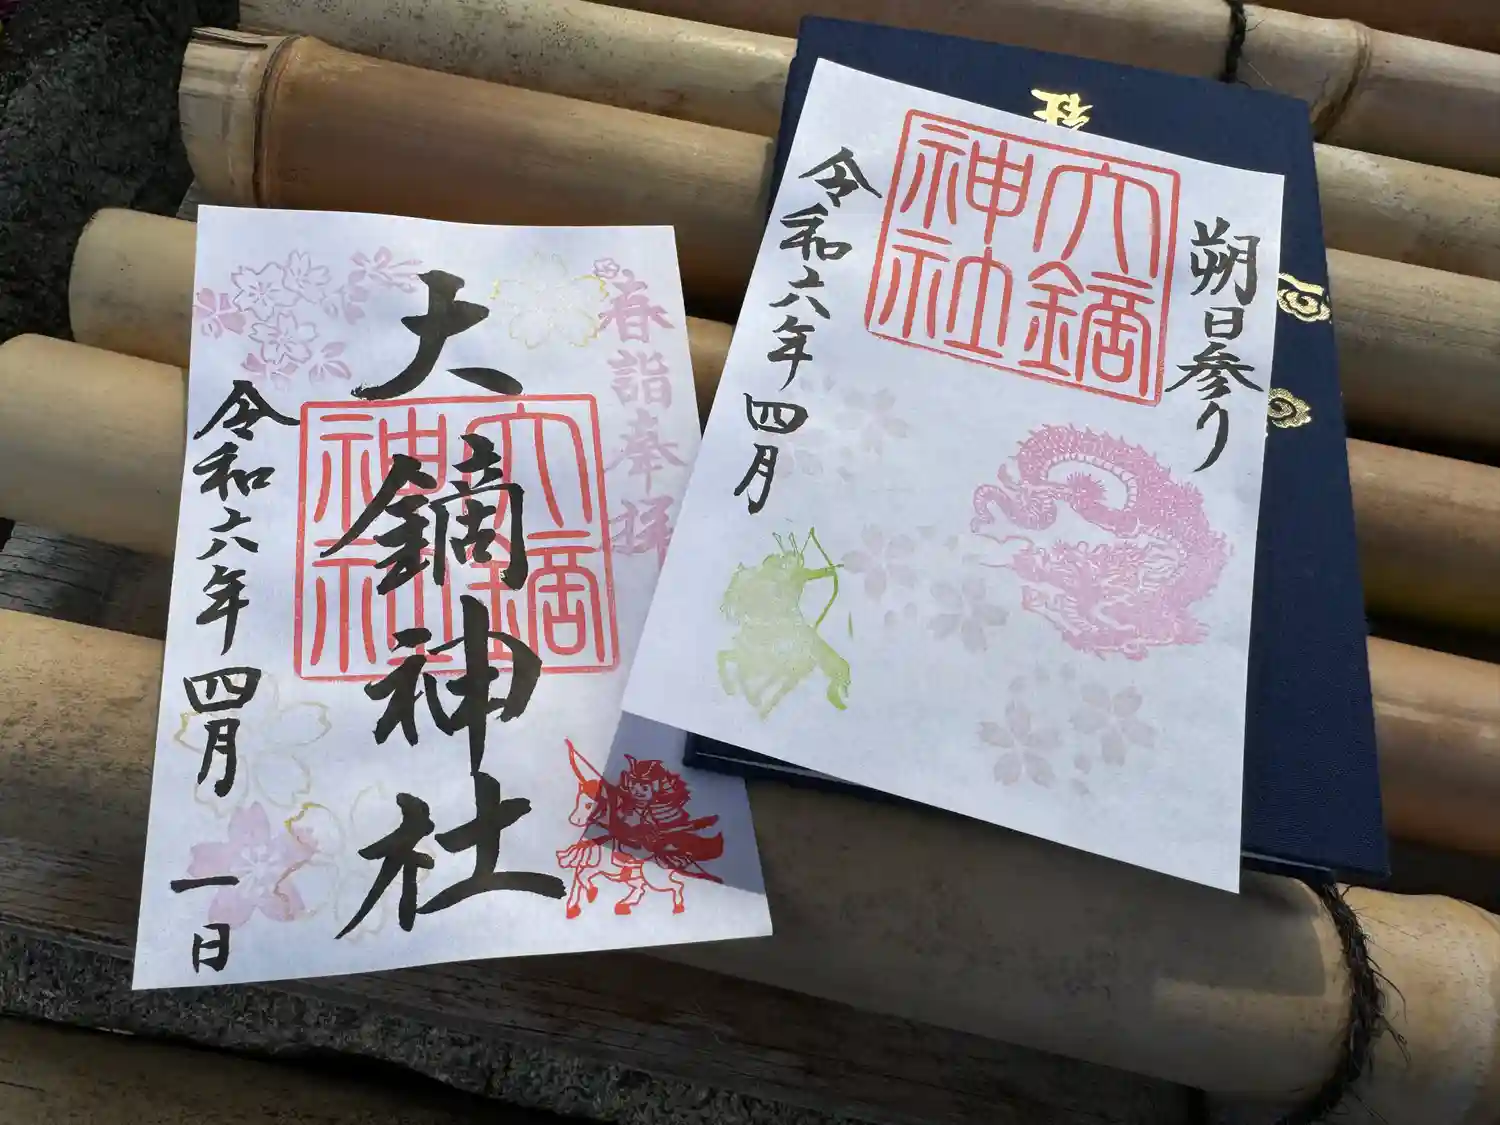 春詣奉拝
大鏑神社
大鏑
神社
令和六年四月一日
朔日参り
大鏑
神社
令和六年四月
社